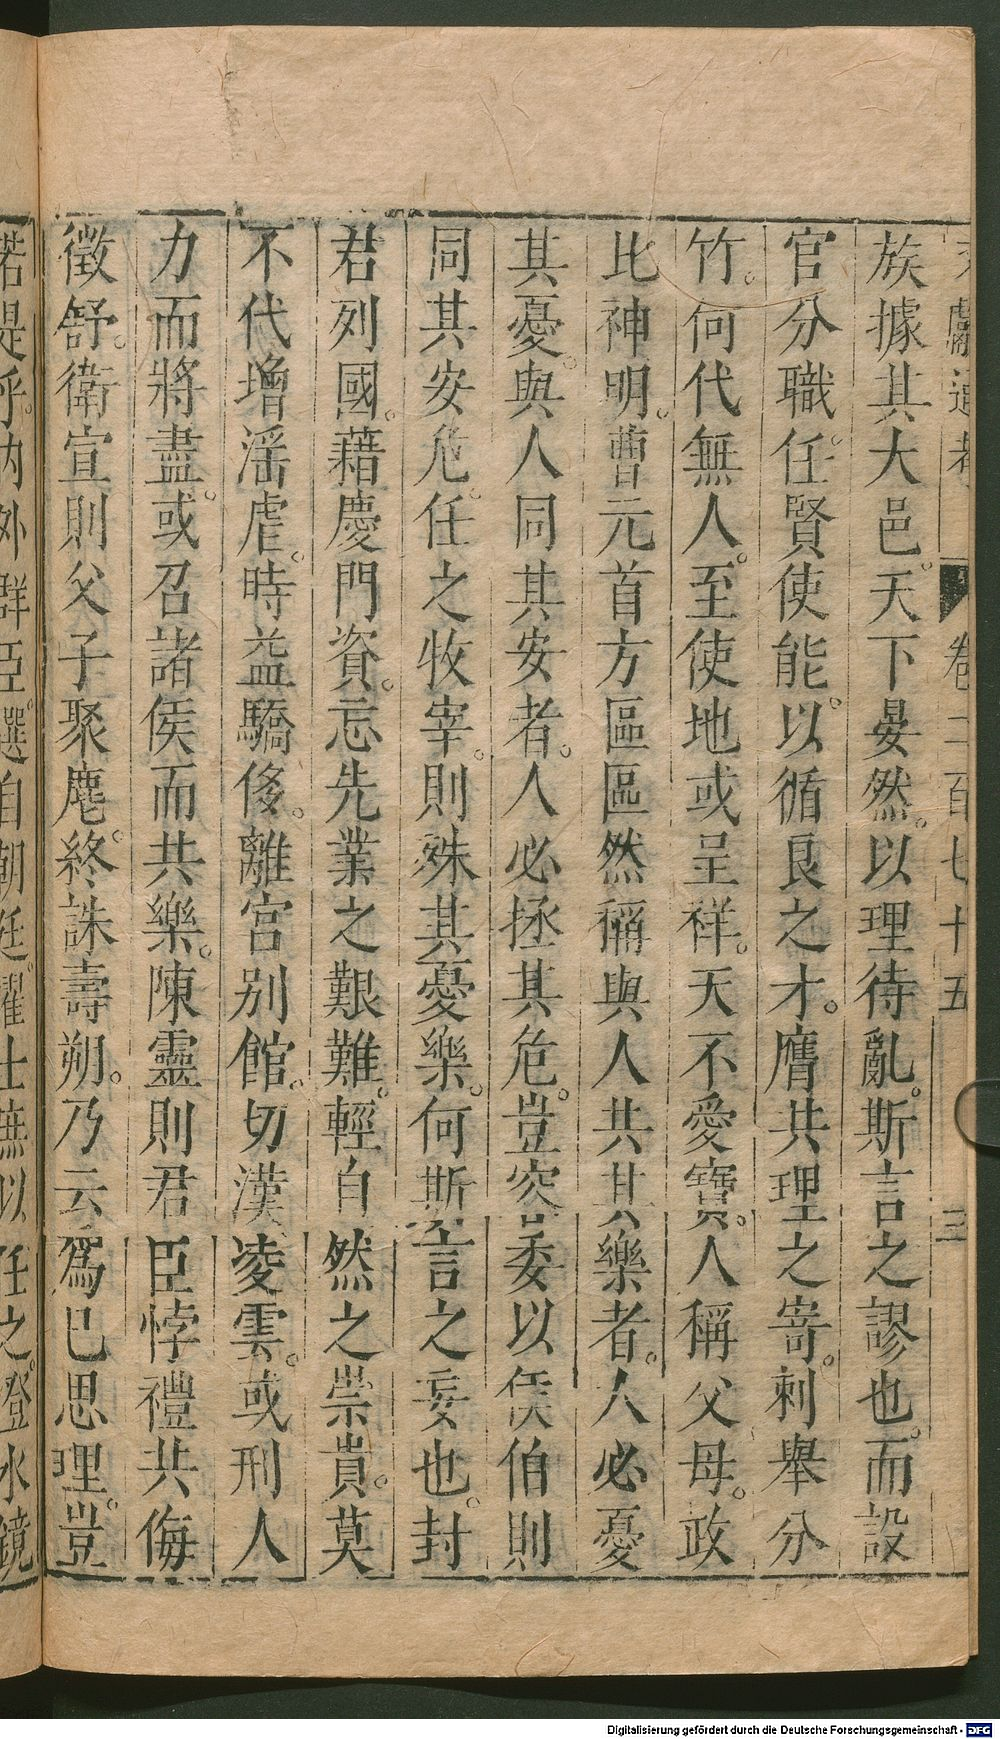 文獻通考 卷二百七十五 三
族據其大邑。天下晏然。以理待亂。斯言之謬也。而設
官分職。任賢使能。以循良之才。膺共理之寄。刺舉分
竹。何代無人。至使地或呈祥。天不愛寶。人稱父母。政
比神明。曹元首方區區然稱與人共其樂者。人必憂
其憂。與人同其安者。人必拯其危。豈容委以侯伯則
同其安危。任之牧宰。則殊其憂樂。何斯言之妄也。封
君列國。藉慶門資。忘先業之艱難。輕自然之崇貴。莫
不代增淫虐。時益驕侈。離宮別館。切漢凌雲。或刑人
力而將盡。或召諸侯而共樂。陳靈則君臣悖禮共侮
徵舒。衛宣則父子聚麀。終誅壽朔。乃云爲已思理。豈
若是乎。內外群臣。選自朝廷。擢士庶以任之。澄水鏡
Digitalisierung gefördert durch die Deutsche Forschungsgemeinschaft - DFG